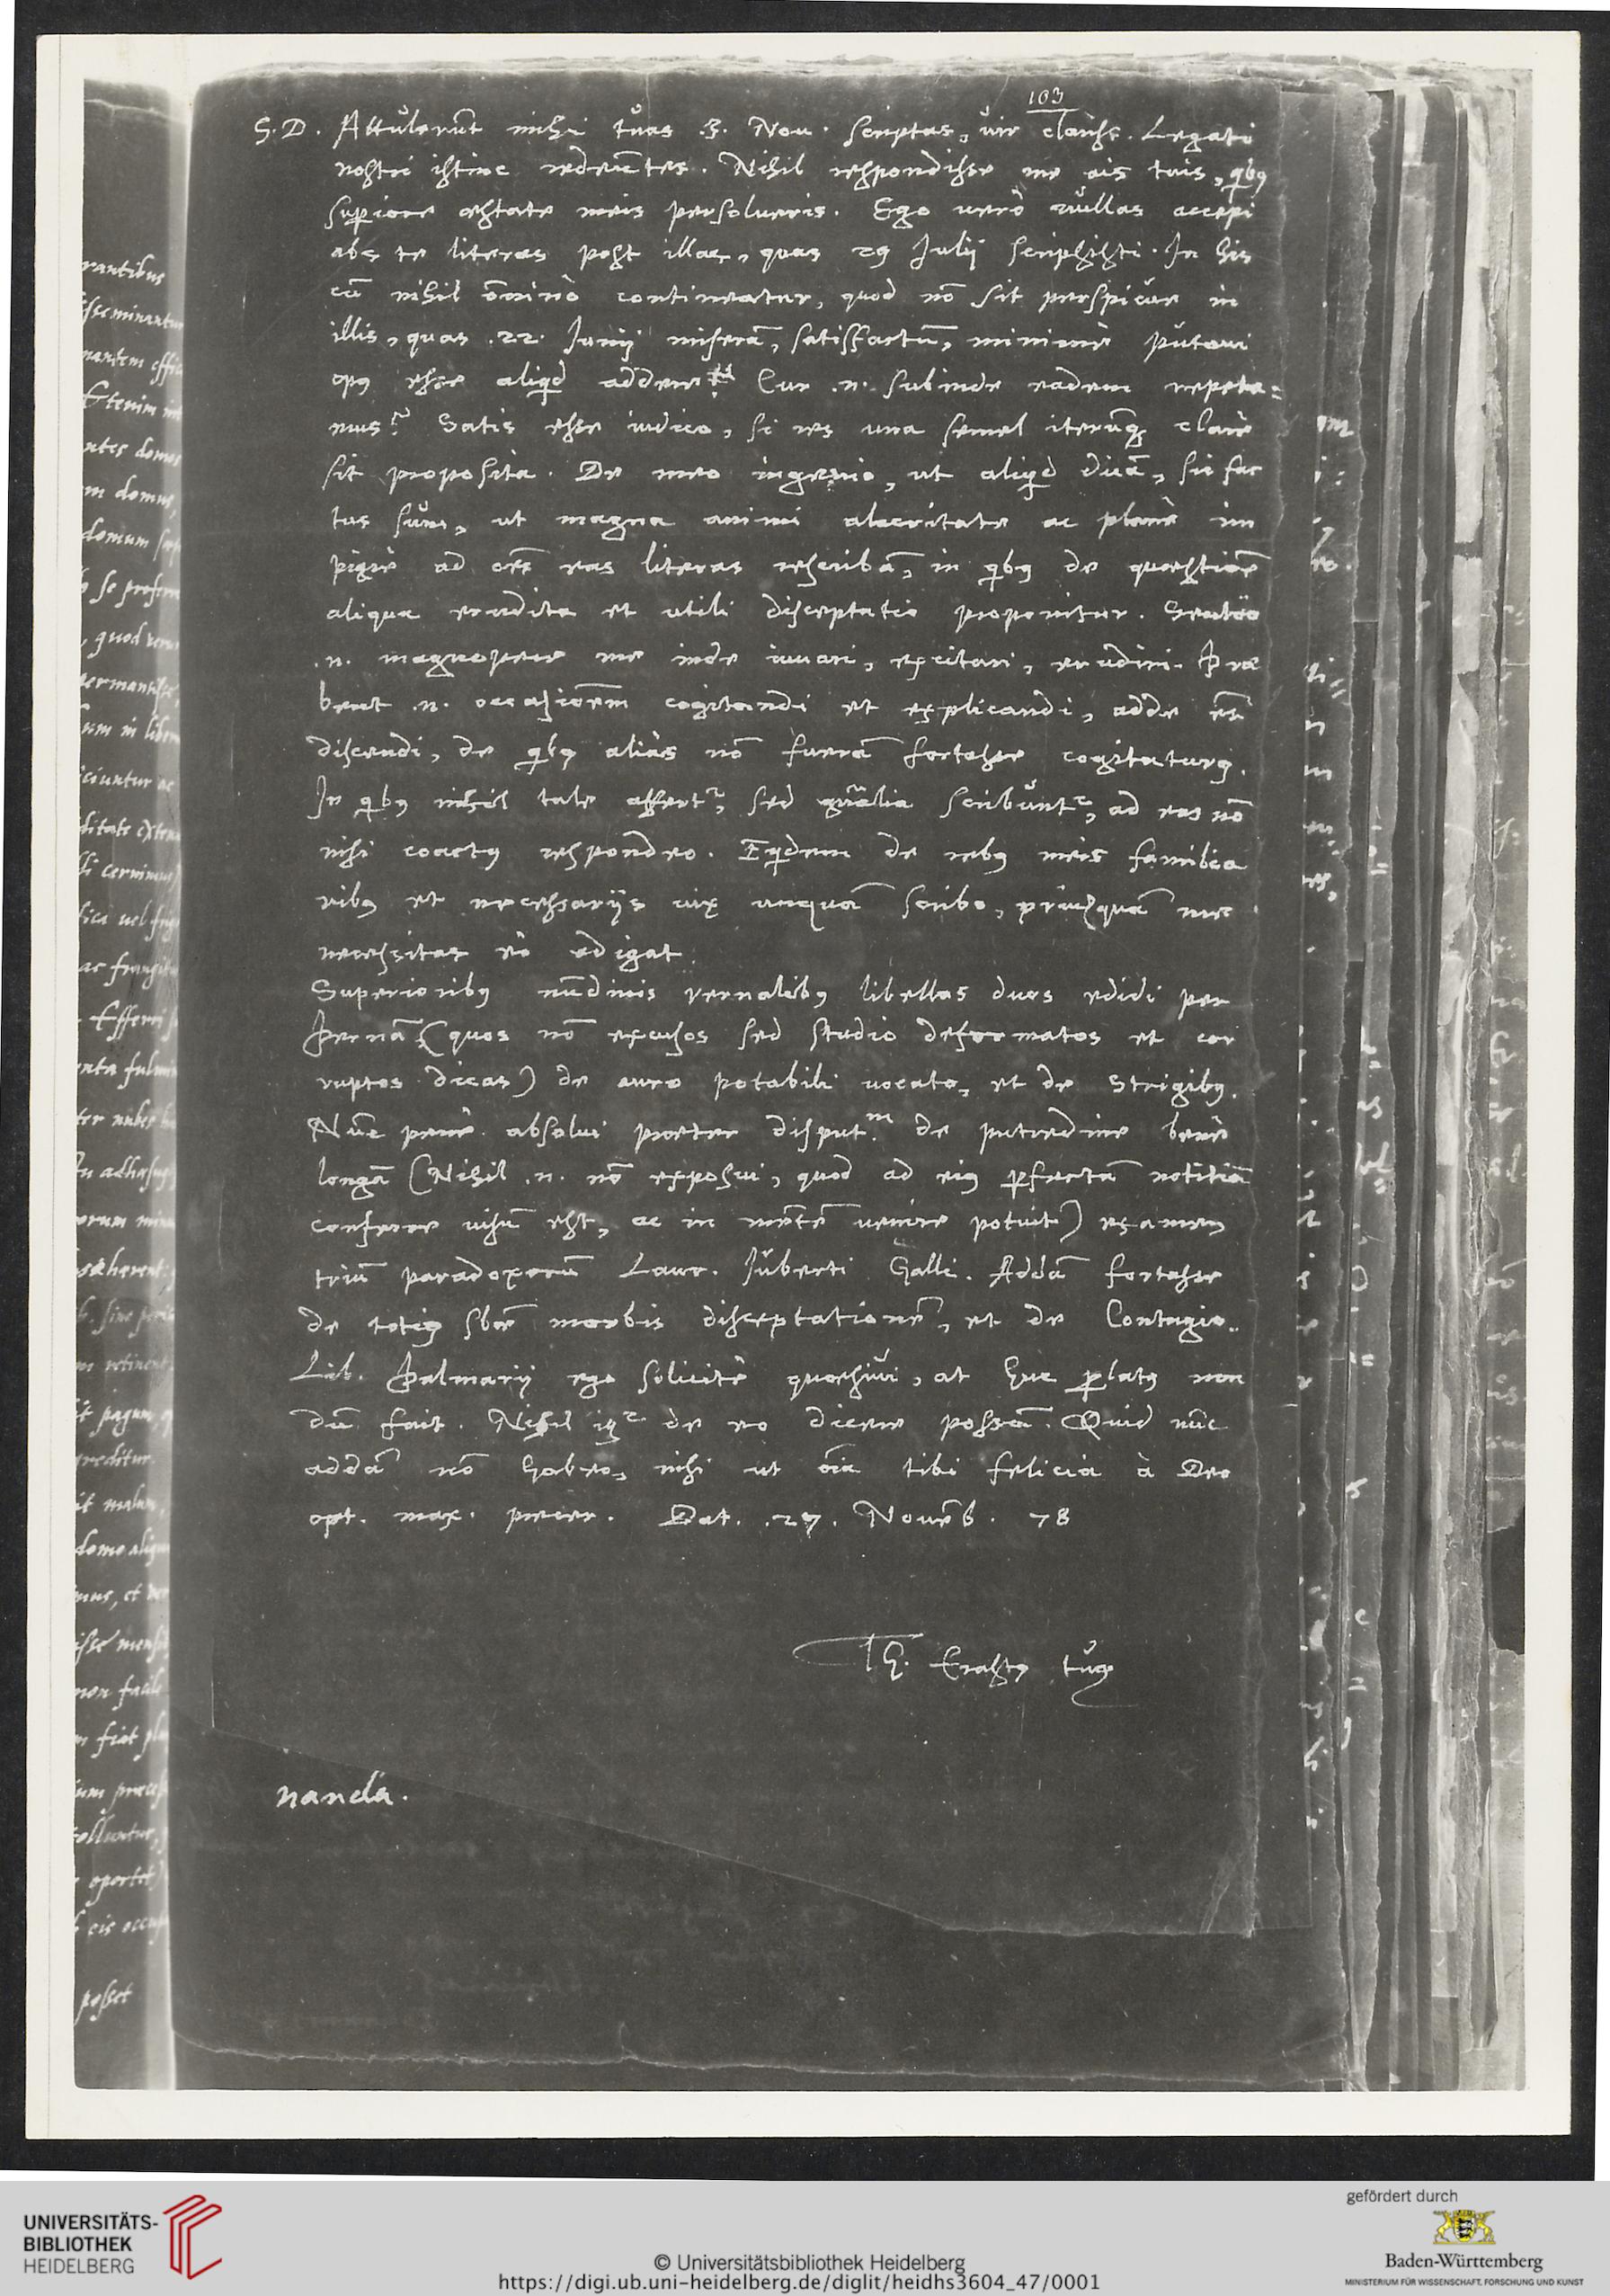 103
S. D. Attulerũt mihi tuas .3. Nou. scriptas, uir clariss. Legati
nostri istinc redeũtes. Nihil respondisse me ais tuis, qbꝯ
supiore aestate meis persolueris. Ego uerò nullas accepi
abs te literas post illas, quas 29 Julij scripsisti. In his
cũ nihil õninò contineatur, quod nõ sit perspicue in
illis, quas .22. Junij miserã, satisfactũ, minimè putaui
opꝯ esse aliqd addere. Cur .n. subinde eadem repeta=
mus? Satis esse iudico, si res una semel iterũq clarè
sit proposita. De meo ingenio, ut aliqd dicã, sic fac
tus sum, ut magna animi alacritate ac planè im
pigrè ad oẽs eas literas rescribã, in qbꝯ de quaestiõe
aliqua erudita et utili disceptatio proponitur. Sentio
.n. magnopere me inde iuuari, excitari, erudiri. Prae
bent .n. occasiõem cogitandi et explicandi, adde etĩ
discendi, de qbꝯ aliàs nõ fuerã fortasse cogitaturꝯ.
In qbꝯ nihil tale affert᷑, sed gñalia scribunt᷑, ad eas nõ
nisi coactꝯ respondeo. Eqdem de rebꝯ meis familia
ribꝯ et necessarijs uix unquã scribo, priusquã me
necessitas eò adigat.
Superioribꝯ nũdinis vernalibꝯ libellos duos edidi per
Pernã (quos nõ excusos sed studio deformatos et cor
ruptos dicas) de auro potabili uocato, et de strigibꝯ.
Nũc penè absolui praeter disput.m de putredine benè
longã (Nihil .n. nõ exposui, quod ad eiꝯ pfectã notitiã
conferre uisũ est, ac in mẽtẽ uenire potuit) examen
triũ paradoxorũ Laur. Juberti Galli. Addã fortasse
de totiꝯ sbẽ morbis disceptationẽ, et de Contagio.
Lib. Palmarij ego solicitè quaesiui, at huc platꝯ non
dũ fuit. Nihil igr de eo dicere possũ. Quid nũc
addã nõ habeo, nisi ut õia tibi felicia à Deo
opt. max. precer. Dat. .27. Nouẽb. 78
Th. Erastꝯ tuꝯ
nanda.
rantibus
Etenim
domus
domum
quod
in libro
iciuntur ac
ditate
cerninus
Efferri
retinent
pagum
reditur
malum,
non facile
fiat
oportet
posset
UNIVERSITÄTS-
BIBLIOTHEK
HEIDELBERG
© Universitätsbibliothek Heidelberg
https://digi.ub.uni-heidelberg.de/diglit/heidhs3604_47/0001
gefördert durch
Baden-Württemberg
MINISTERIUM FÜR WISSENSCHAFT, FORSCHUNG UND KUNST